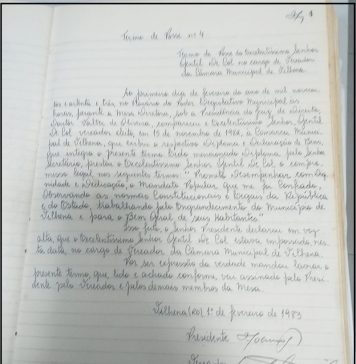 Termo de Posse nº 4
Termo de Posse do Excelentíssimo Senhor
Gentil de Col no cargo de Vereador
da Câmara Municipal de Vilhena.
Ao primeiro dia de fevereiro do ano de mil novecen
tos e oitenta e três no Plenário do Poder Legislativo Municipal, às
horas, perante a Mesa Diretora, sob a Presidência do Juiz de Direito,
Doutor Valter de Oliveira, compareceu o Excelentíssimo Senhor Gentil
de Col vereador eleito, em 15 de novembro de 1982, à Câmara Munici
pal de Vilhena, que exibiu o respectivo Diploma e Declaração de Bens,
que integra o presente termo. Lido mencionado Diploma pelo Senhor
Secretário, prestou o Excelentíssimo Senhor Gentil de Col o compro
misso legal nos seguintes termos: "Prometo Desempenhar com Dig
nidade e Dedicação, o Mandato Popular que me foi Confiado,
Observando as normas Constitucionais e Legais da República
e do Estado, trabalhando pelo Engrandecimento do Município de
Vilhena e para o Bem Geral de seus habitantes."
Isso feito, o Senhor Presidente declarou em voz
alta, que o Excelentíssimo Senhor Gentil de Col estava empossado, nes
ta data, no cargo de Vereador da Câmara Municipal de Vilhena.
Por ser expressão da verdade mandou lavrar o
presente termo que, lido e achado conforme, vai assinado pelo Presi
dente pelo Vereador e pelos demais membros da Mesa.
Vilhena (RO) 1º de fevereiro de 1983
Presidente